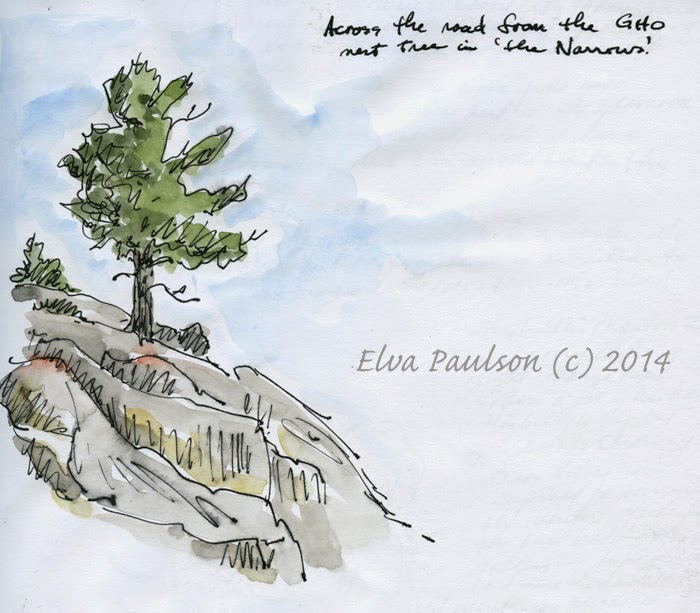 Across the road from the GHO
nest tree in 'the Narrows.'
Elva Paulson (c) 2014